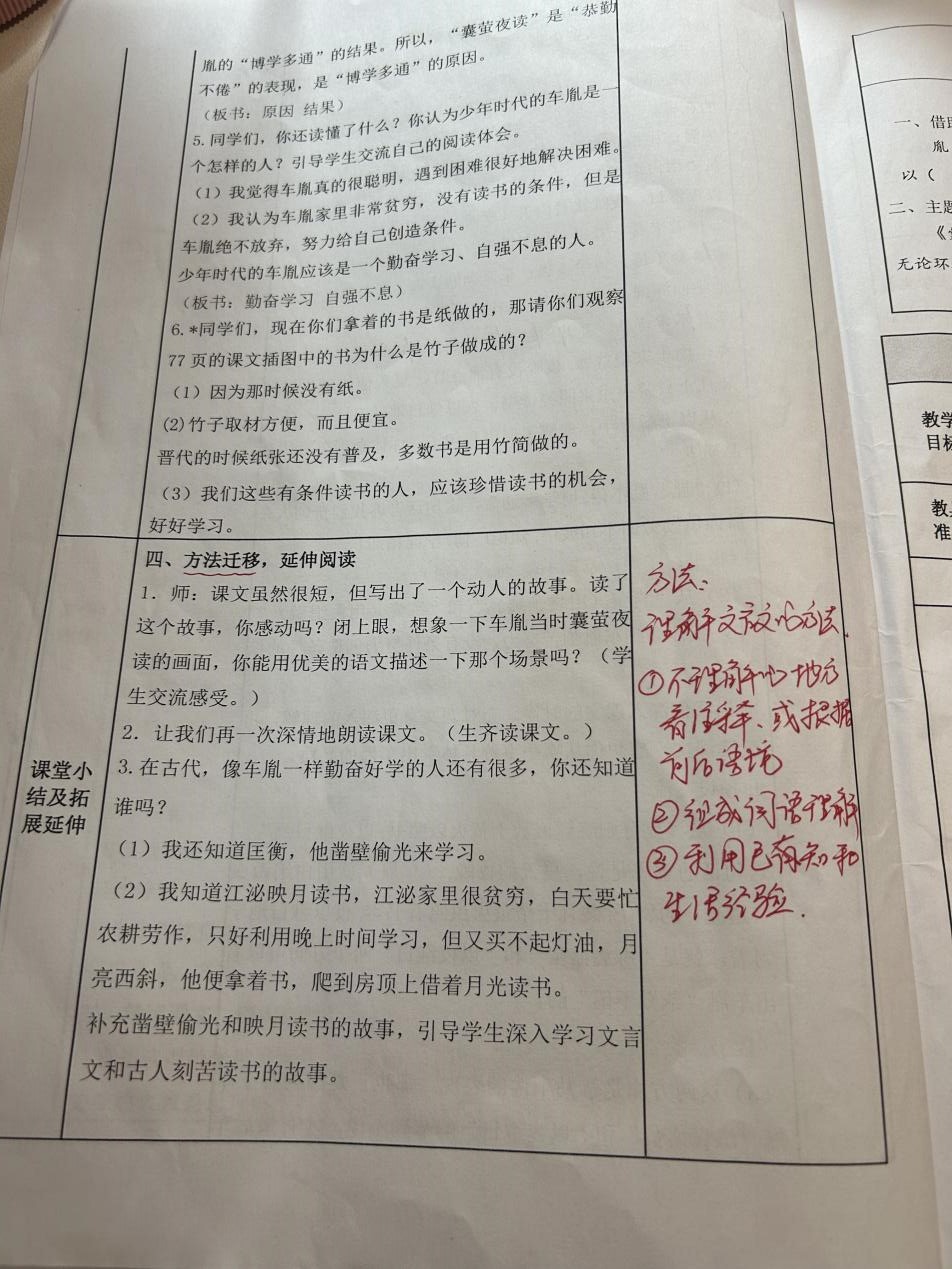 胤的“博学多通”的结果。所以，“囊萤夜读”是“恭勤
不倦”的表现，是“博学多通”的原因。
（板书：原因 结果）
5.同学们，你还读懂了什么？你认为少年时代的车胤是一
个怎样的人？引导学生交流自己的阅读体会。
（1）我觉得车胤真的很聪明，遇到困难很好地解决困难。
（2）我认为车胤家里非常贫穷，没有读书的条件，但是
车胤绝不放弃，努力给自己创造条件。
少年时代的车胤应该是一个勤奋学习、自强不息的人。
（板书：勤奋学习 自强不息）
6.*同学们，现在你们拿着的书是纸做的，那请你们观察
77 页的课文插图中的书为什么是竹子做成的？
（1）因为那时候没有纸。
(2)竹子取材方便，而且便宜。
晋代的时候纸张还没有普及，多数书是用竹简做的。
（3）我们这些有条件读书的人，应该珍惜读书的机会，
好好学习。
课堂小
结及拓
展延伸
四、方法迁移，延伸阅读
1．师：课文虽然很短，但写出了一个动人的故事。读了
这个故事，你感动吗？闭上眼，想象一下车胤当时囊萤夜
读的画面，你能用优美的语文描述一下那个场景吗？（学
生交流感受。）
2．让我们再一次深情地朗读课文。（生齐读课文。）
3.在古代，像车胤一样勤奋好学的人还有很多，你还知道
谁吗？
（1）我还知道匡衡，他凿壁偷光来学习。
（2）我知道江泌映月读书，江泌家里很贫穷，白天要忙
农耕劳作，只好利用晚上时间学习，但又买不起灯油，月
亮西斜，他便拿着书，爬到房顶上借着月光读书。
补充凿壁偷光和映月读书的故事，引导学生深入学习文言
文和古人刻苦读书的故事。
方法：
理解文言文的方法.
①不理解的地方
看注释、或根据
前后语境
②组成词语理解
③利用已有知和
生活经验.
一、借
胤
以（
二、主题
《
无论环
教学
目标
教
准